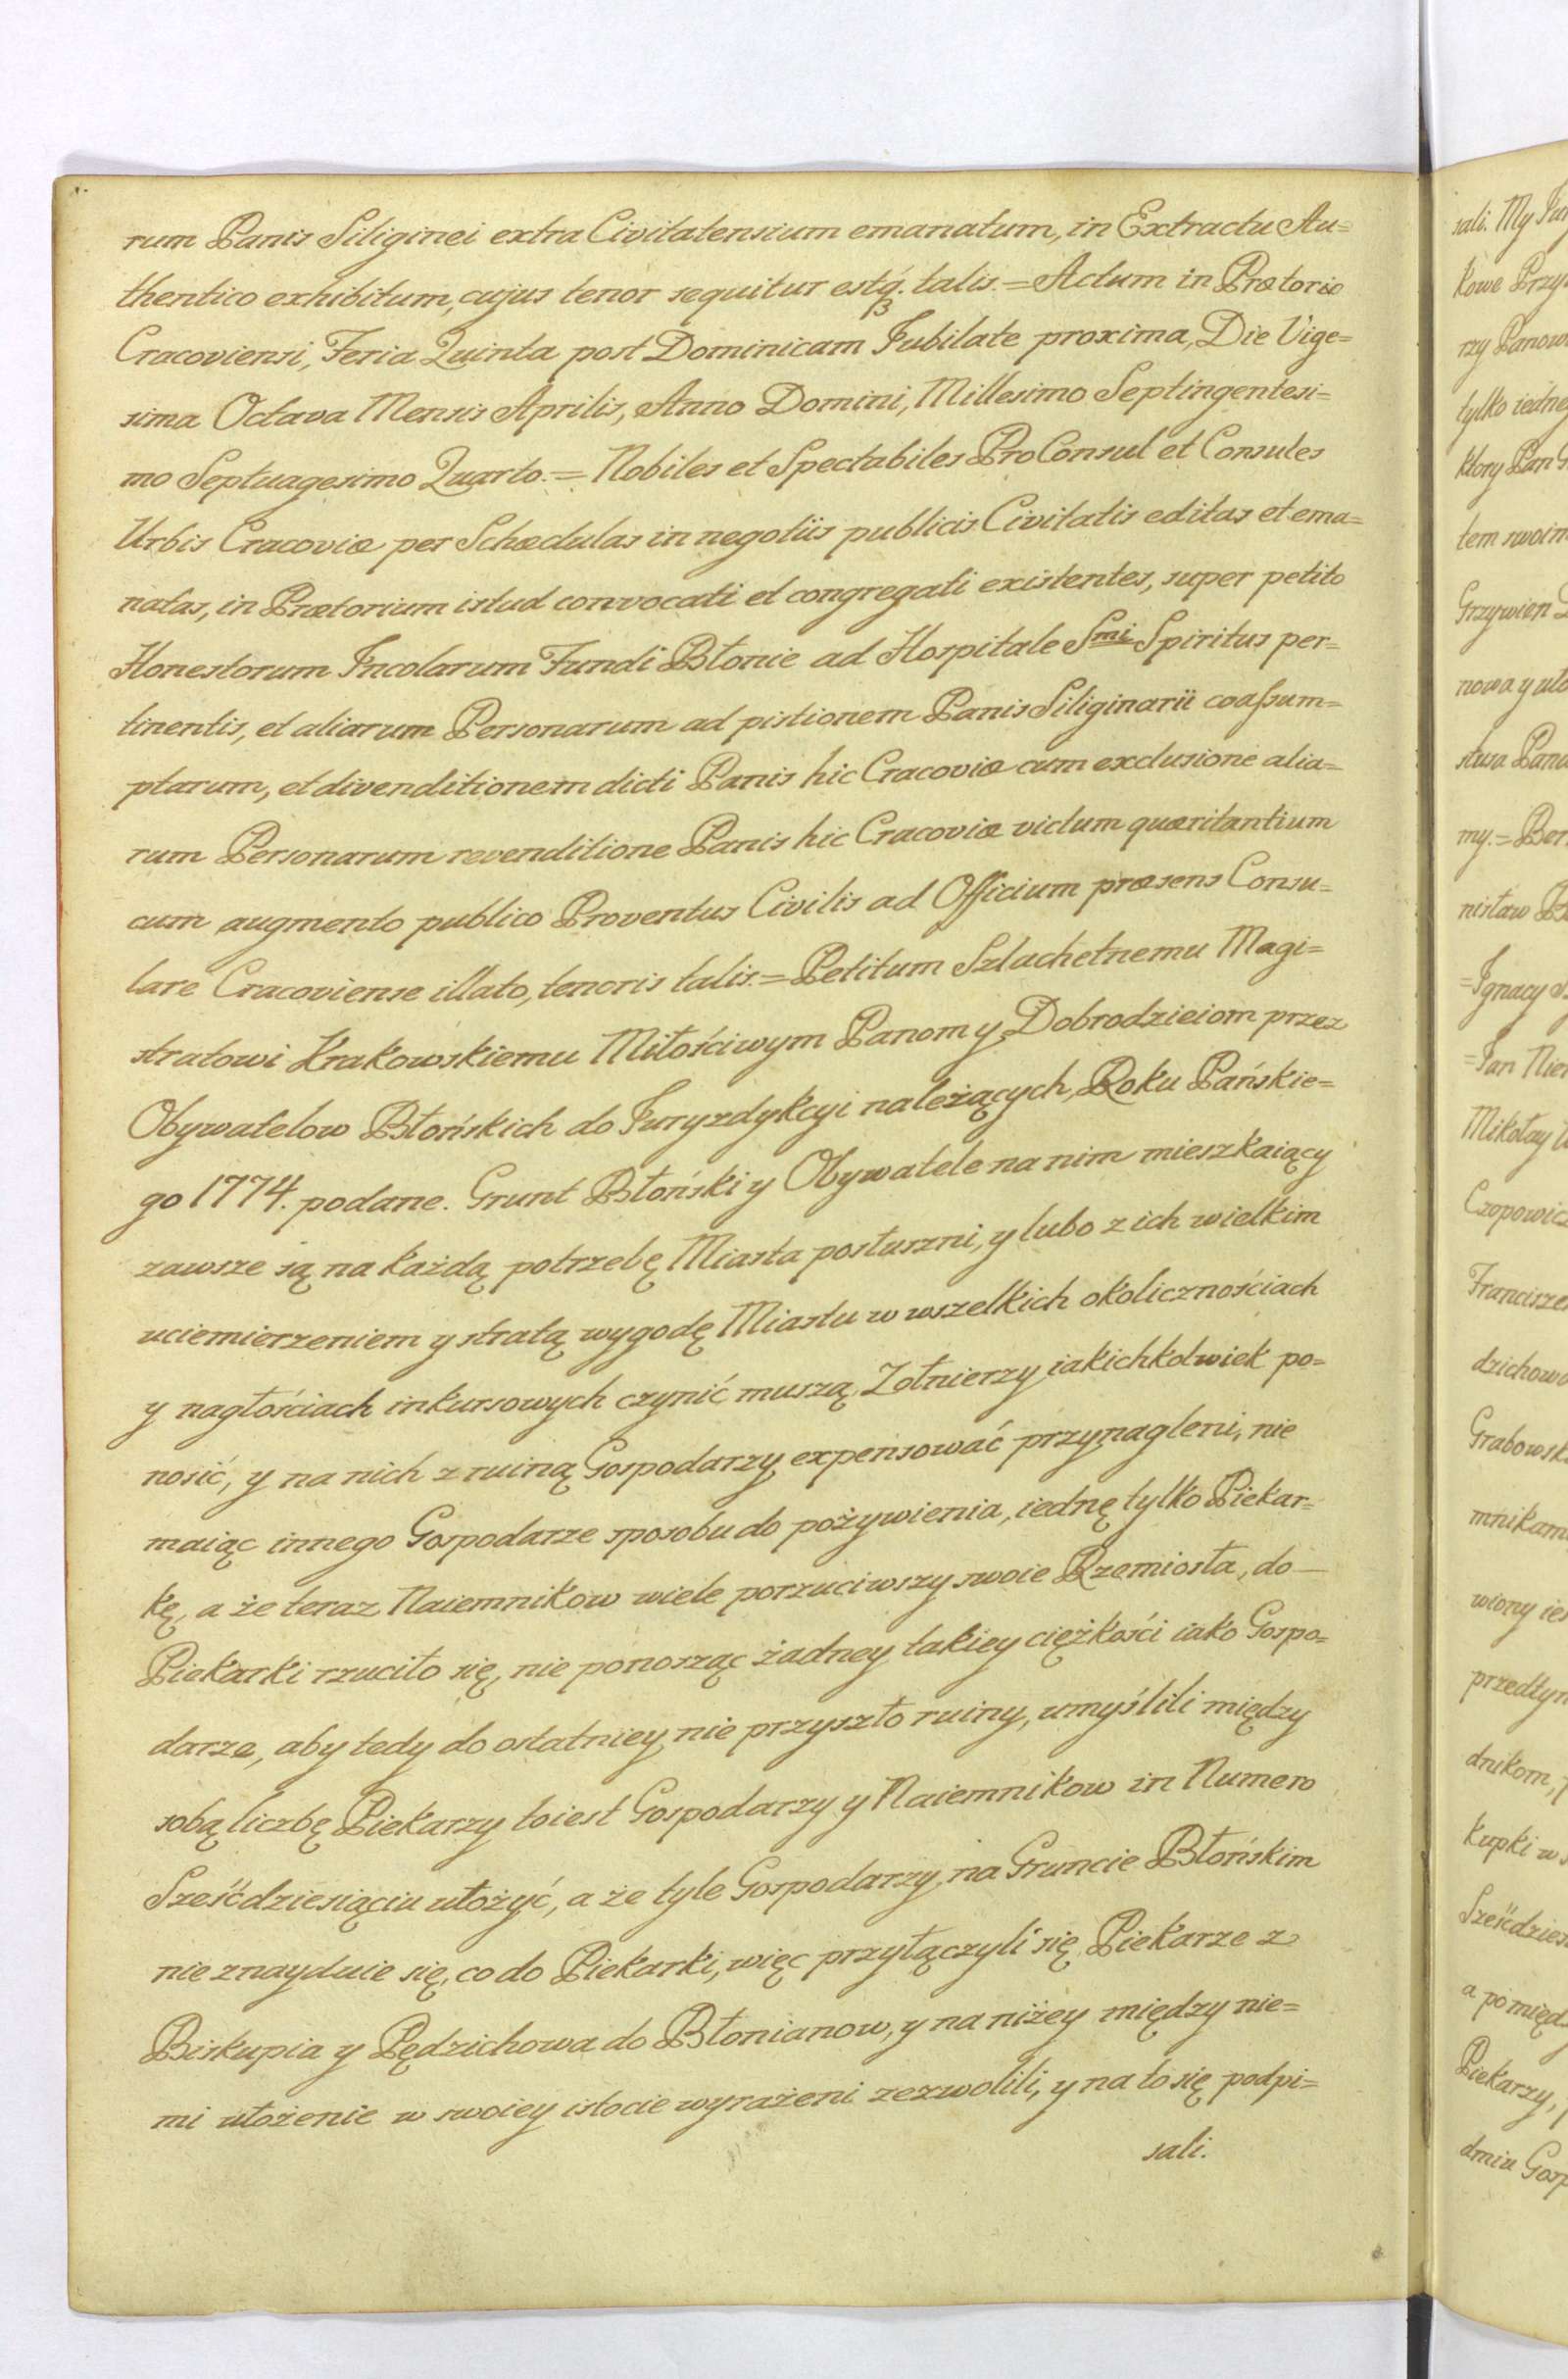 rum Panis Siliginei extra Civitatensium emanatum, in Extractu Au=
thentico exhibitum, cujus tenor sequitur estq́. talis. = Actum in Prætorio
Cracoviensi, Feria Quinta post Dominicam Jubilate proxima, Die Vige=
sima Octava Mensis Aprilis, Anno Domini, Millesimo Septingentesi=
mo Septuagesimo Quarto. = Nobiles et Spectabiles ProConsul et Consules
Urbis Cracoviæ per Schædulas in negotiis publicis Civitatis editas et ema=
natas, in Prætorium istud convocati et congregati existentes, super petito
Honestorum Incolarum Fundi Błonie ad Hospitale Smi Spiritus per=
tinentis, et aliarum Personarum ad pistionem Panis Siliginarii coaſsum=
ptarum, et divenditionem dicti Panis hic Cracoviæ cum exclusione alia=
rum Personarum revenditione Panis hic Cracoviæ victum quæritantium
cum augmento publico Proventus Civilis ad Officium præsens Consu=
lare Cracoviense illato, tenoris talis. = Petitum Szlachetnemu Magi=
stratowi Krakowskiemu Miłościwym Panom y Dobrodzieiom przez
Obywatelow Błońskich do Juryzdykcyi należących, Roku Pańskie=
go 1774. podane. Grunt Błoński y Obywatele na nim mieszkaiący
zawsze są na każdą potrzebę Miasta posłuszni, y lubo z ich wielkim
uciemierzeniem y stratą wygodę Miastu w wszelkich okolicznościach
y nagłościach inkursowych czynić muszą, Żołnierzy iakichkolwiek po=
nosić, y na nich z ruiną Gospodarzy expensować przynagleni, nie
maiąc innego Gospodarze sposobu do pożywienia, iednę tylko Piekar=
kę, a że teraz Naiemnikow wiele porzuciwszy swoie Rzemiosła, do
Piekarki rzuciło się, nie ponosząc żadney takiey ciężkości iako Gospo=
darze, aby tedy do ostatniey nie przyszło ruiny, umyślili między
sobą liczbę Piekarzy toiest Gospodarzy y Naiemnikow in Numero
Sześćdziesiąciu ułożyć, a że tyle Gospodarzy na Gruncie Błońskim
nie znayduie się, co do Piekarki, więc przyłączyli się Piekarze z
Biskupia y Pędzichowa do Błonianow, y na niżey między nie=
mi ułożenie w swoiey istocie wyrażeni zezwolili, y na to się podpi=
sali.
sali. My
kowe
rzy
tylko
ktory Pan
tem
nowa y
my. =
= Ignacy
= Jan
Mikołay
a pomięd
Piekarzy,
dmiu